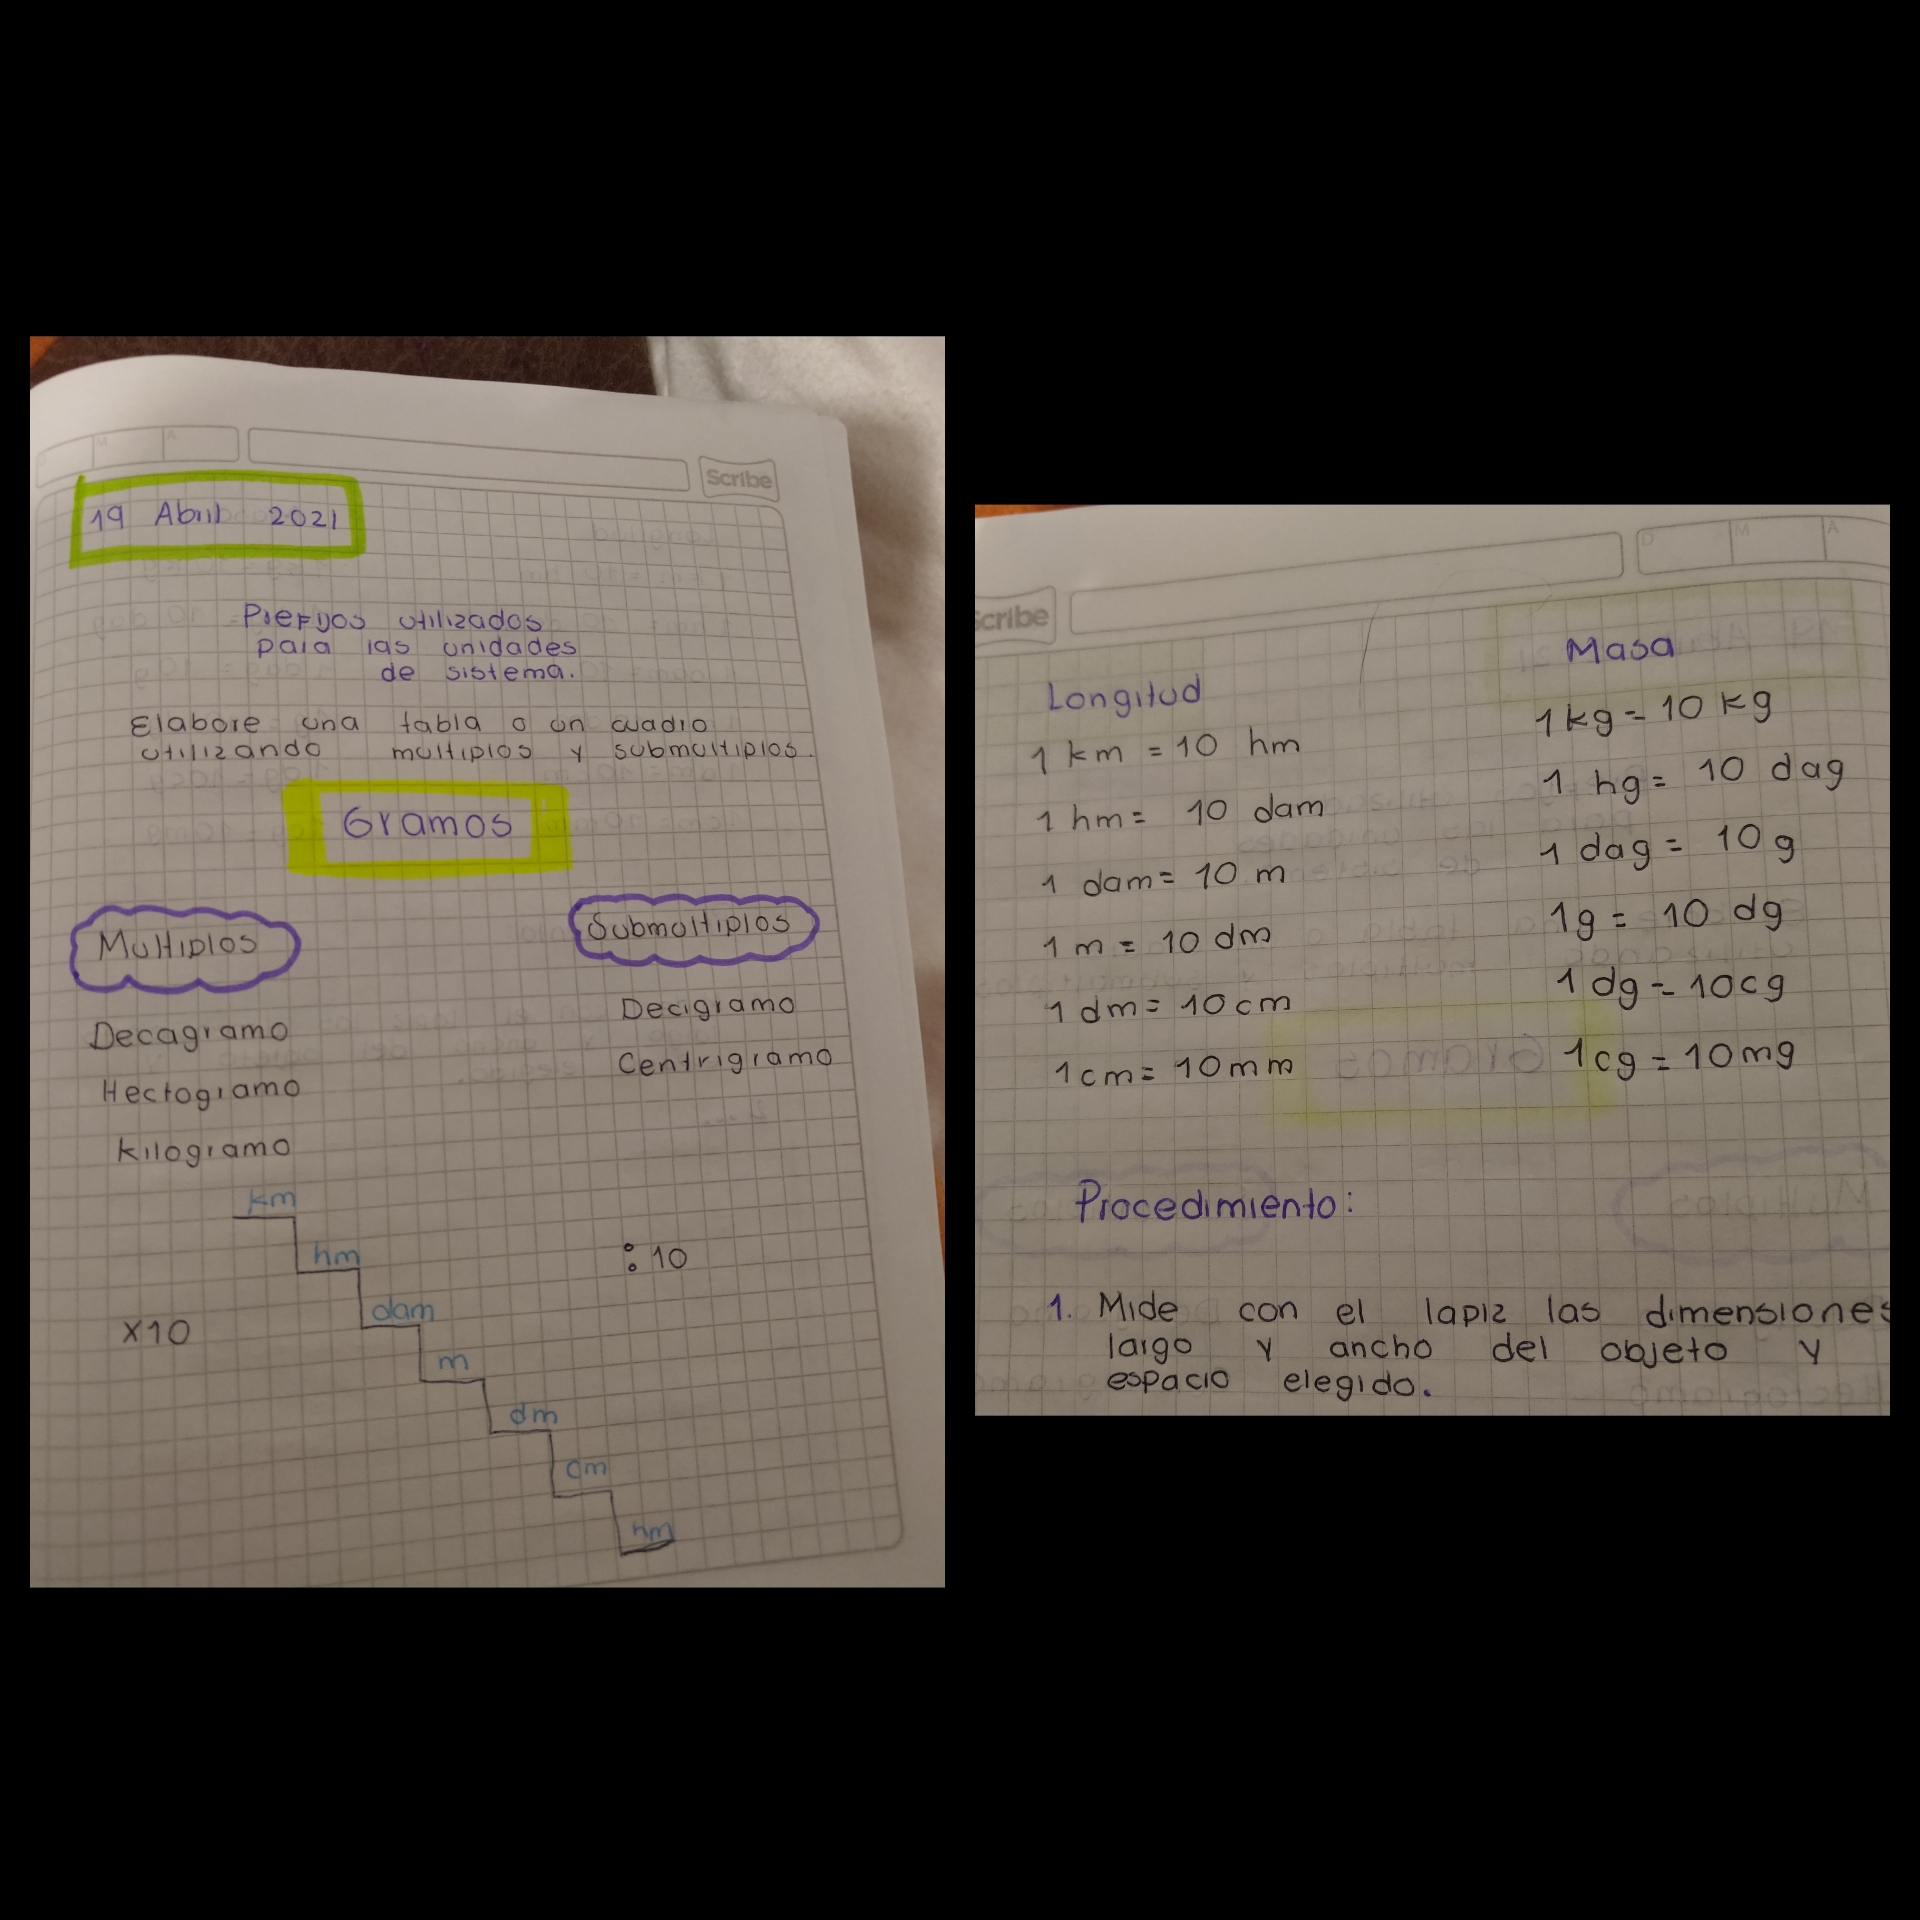 M A
Scribe
19 Abril 2021
Prefijos utilizados
para las unidades
de sistema.
Elabore una tabla o un cuadro
utilizando multiplos y submultiplos.
Gramos
Multiplos
Submultiplos
Decagramo
Decigramo
Hectogramo
Centrigramo
kilogramo
km
hm
:10
dam
x10
m
dm
cm
mm
Scribe
D M A
Longitud
Masa
1 km = 10 hm
1kg = 10 kg
1 hm = 10 dam
1 hg = 10 dag
1 dam = 10 m
1 dag = 10 g
1 m = 10 dm
1g = 10 dg
1 dm = 10 cm
1 dg = 10cg
1cm = 10mm
1cg = 10mg
Procedimiento:
1. Mide con el lapiz las dimensiones
largo y ancho del objeto y
espacio elegido.